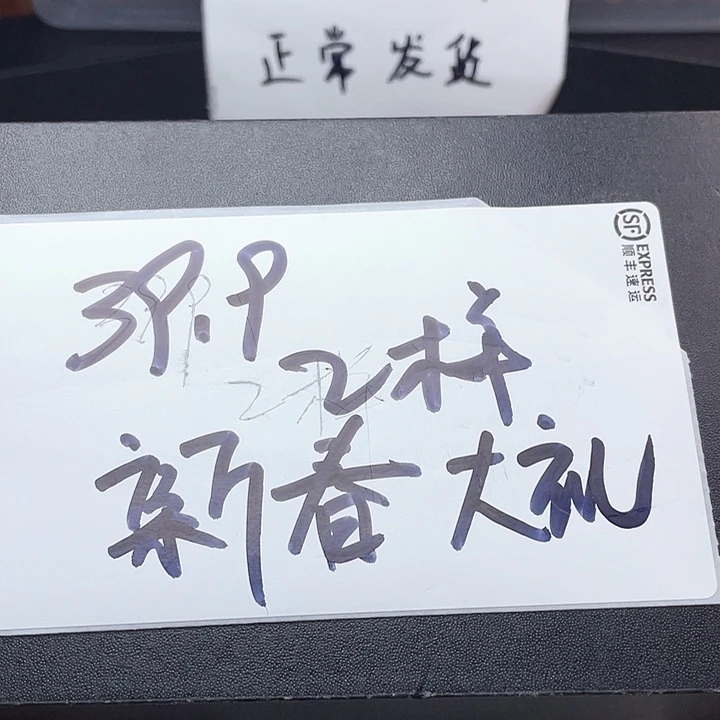 正常发货
SF EXPRESS
顺丰速运
39.9
2样
新春大礼